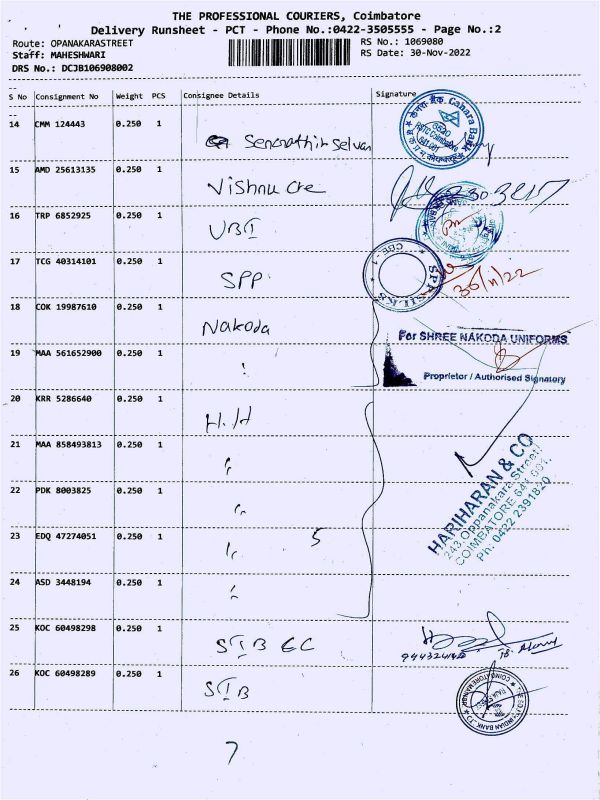 THE PROFESSIONAL COURIERS, Coimbatore
Delivery Runsheet - PCT - Phone No.:0422-3505555 - Page No.:2
Route: OPANAKARASTREET
RS No.: 1069080
Staff: MAHESHWARI
RS Date: 30-Nov-2022
DRS No.: DCJB106908002
S No Consignment No Weight PCS Consignee Details Signature
14 CMM 124443 0.250 1
Canara Bank
15 AMD 25613135 0.250 1 Vishnu Cre
16 TRP 6852925 0.250 1 UBI
17 TCG 40314101 0.250 1 SPP
CBE - 1
SPP SILKS
30/11/22
18 COK 19987610 0.250 1 Nakoda
For SHREE NAKODA UNIFORMS
19 MAA 561652900 0.250 1 "
Proprietor / Authorised Signatory
20 KRR 5286640 0.250 1 H.H
21 MAA 858493813 0.250 1 "
22 PDK 8003825 0.250 1 "
HARIHARAN & CO
243, Oppanakara Street,
COIMBATORE 641 001.
Ph: 0422 2391820
23 EDQ 47274051 0.250 1 " 5
24 ASD 3448194 0.250 1 "
25 KOC 60498298 0.250 1 SIB EC
26 KOC 60498289 0.250 1 SIB
7